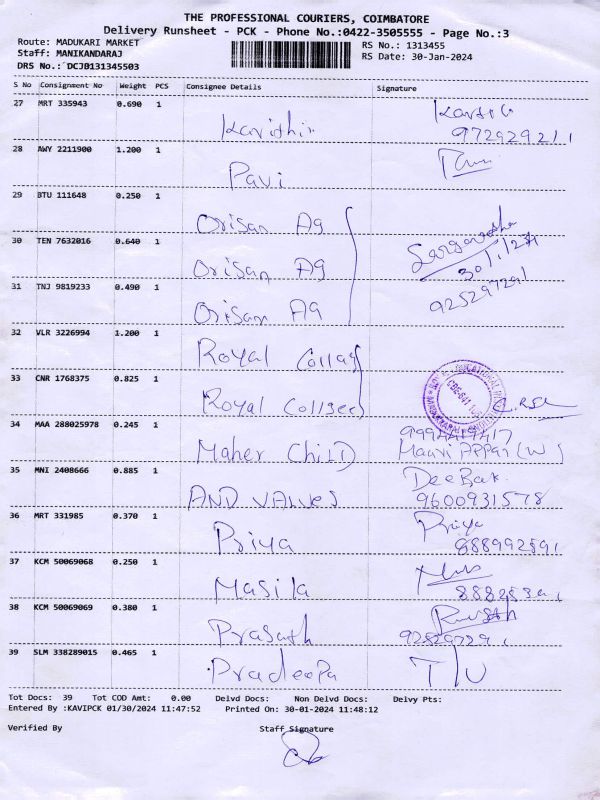 THE PROFESSIONAL COURIERS, COIMBATORE
Delivery Runsheet - PCK - Phone No.:0422-3505555 - Page No.:3
Route: MADUKARI MARKET RS No.: 1313455
Staff: MANIKANDARAJ RS Date: 30-Jan-2024
DRS No.: DCJB131345503
S No Consignment No Weight PCS Consignee Details Signature
27 MRT 335943 0.690 1
28 AWY 2211900 1.200 1
Pavi
29 BTU 111648 0.250 1
Orisan Ag
30 TEN 7632016 0.640 1
Orisan Ag
30/1/24
31 TNJ 9819233 0.490 1
Orisan Ag
925297291
32 VLR 3226994 1.200 1
Royal Collag
33 CNR 1768375 0.825 1
Royal Collgee
34 MAA 288025978 0.245 1
Maher ChilD
35 MNI 2408666 0.885 1 DeeBak
AND VALVES 9600931578
36 MRT 331985 0.370 1 Priya
Priya 888992591
37 KCM 50069068 0.250 1
Masila
38 KCM 50069069 0.380 1
Prasath
39 SLM 338289015 0.465 1
Pradeepa
Tot Docs: 39 Tot COD Amt: 0.00 Delvd Docs: Non Delvd Docs: Delvy Pts:
Entered By :KAVIPCK 01/30/2024 11:47:52 Printed On: 30-01-2024 11:48:12
Verified By Staff Signature